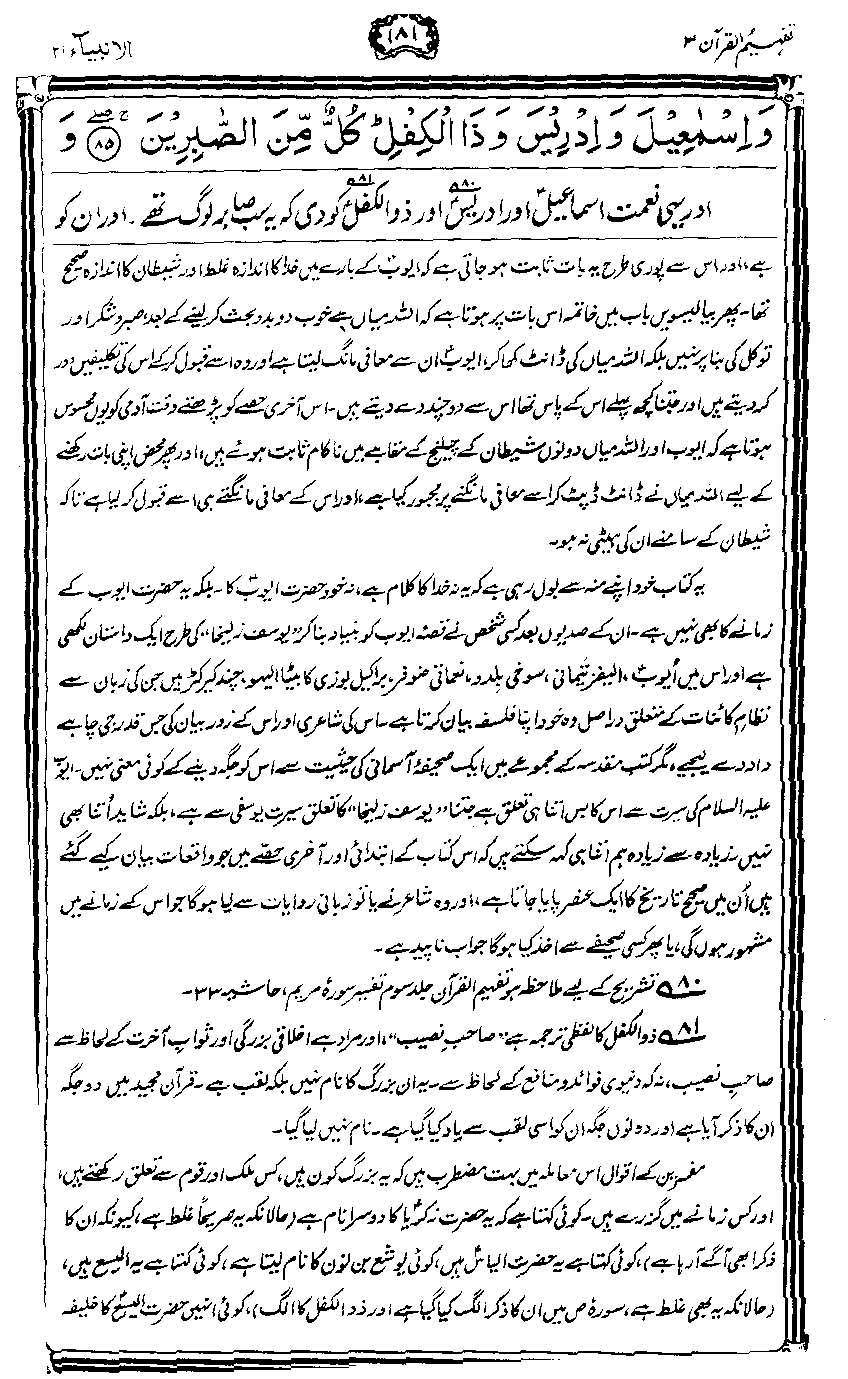 تفہیم القرآن ۳
۱۸۱
الانبیاء ۲۱
وَاِسْمٰعِیْلَ وَاِدْرِیْسَ وَذَا الْکِفْلِؕ کُلٌّ مِّنَ الصّٰبِرِیْنَ ۸۵ وَ
اور یہی نعمت اسماعیلؑ اور ادریسؑ ۸۰ اور ذوالکفلؑ ۸۱ کو دی کہ یہ سب صابر لوگ تھے۔ اور ان کو
ہے، اور اس سے پوری طرح یہ بات ثابت ہو جاتی ہے کہ ایوبؑ کے بارے میں خدا کا اندازہ غلط اور شیطان کا اندازہ صحیح
تھا۔ پھر بیالیسویں باب میں خاتمہ اس بات پر ہوتا ہے کہ اللہ میاں سے خوب دوبدو بحث کر لینے کے بعد، صبر و شکر اور
توکل کی بنا پر نہیں بلکہ اللہ میاں کی ڈانٹ کھا کر، ایوبؑ ان سے معافی مانگ لیتا ہے اور وہ اسے قبول کر کے اس کی تکلیفیں دور
کر دیتے ہیں اور جتنا کچھ پہلے اس کے پاس تھا اس سے دو چند دے دیتے ہیں۔ اس آخری حصے کو پڑھتے وقت آدمی کو یوں محسوس
ہوتا ہے کہ ایوب اور اللہ میاں دونوں شیطان کے چیلنج کے مقابلے میں ناکام ثابت ہوئے ہیں، اور پھر محض اپنی بات رکھنے
کے لیے اللہ میاں نے ڈانٹ ڈپٹ کر اسے معافی مانگنے پر مجبور کیا ہے، اور اس کے معافی مانگتے ہی اسے قبول کر لیا ہے تاکہ
شیطان کے سامنے ان کی ہیٹی نہ ہو۔
یہ کتاب خود اپنے منہ سے بول رہی ہے کہ یہ نہ خدا کا کلام ہے، نہ خود حضرت ایوبؑ کا۔ بلکہ یہ حضرت ایوب کے
زمانے کا بھی نہیں ہے۔ ان کے صدیوں بعد کسی شخص نے قصۂ ایوب کو بنیاد بنا کر "یوسف زلیخا" کی طرح ایک داستان لکھی
ہے اور اس میں ایوبؑ، الیفز تیمانی، سوخی بلدد، نعماتی ضوفر، براکیل بوزی کا بیٹا الیہو، چند کیرکٹر ہیں جن کی زبان سے
نظام کائنات کے متعلق دراصل وہ خود اپنا فلسفہ بیان کرتا ہے۔ اس کی شاعری اور اس کے زور بیان کی جس قدر جی چاہے
داد دے لیجیے، مگر کتب مقدسہ کے مجموعے میں ایک صحیفۂ آسمانی کی حیثیت سے اس کو جگہ دینے کے کوئی معنی نہیں۔ ایوبؑ
علیہ السلام کی سیرت سے اس کا بس اتنا ہی تعلق ہے جتنا "یوسف زلیخا" کا تعلق سیرت یوسفی سے ہے، بلکہ شاید اُتنا بھی
نہیں۔ زیادہ سے زیادہ ہم اتنا ہی کہہ سکتے ہیں کہ اس کتاب کے ابتدائی اور آخری حصے میں جو واقعات بیان کیے گئے
ہیں اُن میں صحیح تاریخ کا ایک عنصر پایا جاتا ہے، اور وہ شاعر نے یا تو زبانی روایات سے لیا ہوگا جو اس کے زمانے میں
مشہور ہوں گی، یا پھر کسی صحیفے سے اخذ کیا ہوگا جو اب ناپید ہے۔
۸۰ تشریح کے لیے ملاحظہ ہو تفہیم القرآن جلد سوم تفسیر سورۂ مریم، حاشیہ ۳۳۔
۸۱ ذوالکفل کا لفظی ترجمہ ہے "صاحب نصیب"، اور مراد ہے اخلاقی بزرگی اور ثواب آخرت کے لحاظ سے
صاحبِ نصیب، نہ کہ دنیوی فوائد و منافع کے لحاظ سے۔ یہ ان بزرگ کا نام نہیں بلکہ لقب ہے۔ قرآن مجید میں دو جگہ
ان کا ذکر آیا ہے اور دونوں جگہ ان کو اسی لقب سے یاد کیا گیا ہے۔ نام نہیں لیا گیا۔
مفسرین کے اقوال اس معاملہ میں بہت مضطرب ہیں کہ یہ بزرگ کون ہیں، کس ملک اور قوم سے تعلق رکھتے ہیں،
اور کس زمانے میں گزرے ہیں۔ کوئی کہتا ہے کہ یہ حضرت زکریاؑ کا دوسرا نام ہے (حالانکہ یہ صریحاً غلط ہے، کیونکہ ان کا
ذکر ابھی آگے آ رہا ہے)، کوئی کہتا ہے یہ حضرت الیاسؑ ہیں، کوئی یوشع بن نون کا نام لیتا ہے، کوئی کہتا ہے یہ الیسع ہیں،
(حالانکہ یہ بھی غلط ہے، سورۂ ص میں ان کا ذکر الگ کیا گیا ہے اور ذوالکفل کا الگ)، کوئی انہیں حضرت الیسعؑ کا خلیفہ